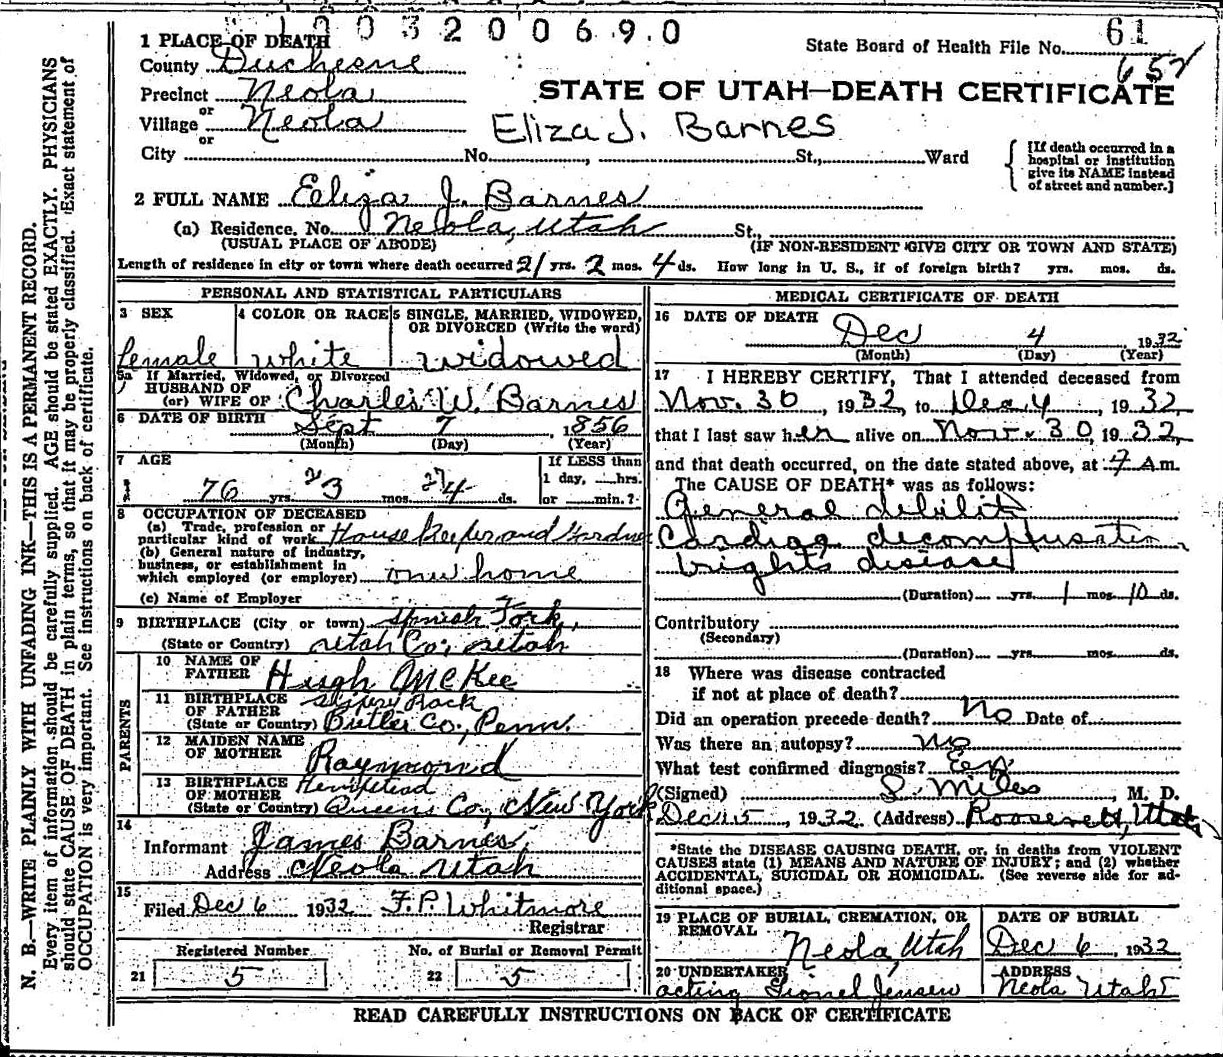 1003200690
61
1 PLACE OF DEATH
State Board of Health File No.
652
County Duchesne
Precinct Neola
or
Village Neola
or
STATE OF UTAH—DEATH CERTIFICATE
Eliza J. Barnes
City No. , St., Ward
[If death occurred in a hospital or institution give its NAME instead of street and number.]
2 FULL NAME Eeliza J. Barnes
(a) Residence. No. Neola, Utah St.,
(USUAL PLACE OF ABODE) (IF NON-RESIDENT GIVE CITY OR TOWN AND STATE)
Length of residence in city or town where death occurred 21 yrs. 2 mos. 4 ds. How long in U. S., if of foreign birth? yrs. mos. ds.
PERSONAL AND STATISTICAL PARTICULARS
3 SEX 4 COLOR OR RACE 5 SINGLE, MARRIED, WIDOWED, OR DIVORCED (Write the word)
female white widowed
5a If Married, Widowed, or Divorced
HUSBAND OF
(or) WIFE OF Charles W. Barnes
6 DATE OF BIRTH Sept 7, 1856
(Month) (Day) (Year)
7 AGE
If LESS than
1 day, hrs.
or min.?
2 27
76 yrs. 3 mos. 4 ds.
8 OCCUPATION OF DECEASED
(a) Trade, profession or
particular kind of work House Keeper and Gardner
(b) General nature of industry,
business, or establishment in
which employed (or employer) onw home
(c) Name of Employer
9 BIRTHPLACE (City or town) Spnish Fork,
(State or Country) Utah Co; Utah
PARENTS
10 NAME OF FATHER Hugh McKee
11 BIRTHPLACE OF FATHER Slipery Rock
(State or Country) Butler Co., Penn.
12 MAIDEN NAME OF MOTHER Raymond
13 BIRTHPLACE OF MOTHER Hempstead
(State or Country) Queens Co, New York
14
Informant James Barnes,
Address Neola Utah
15
Filed Dec 6 1932 F. P. Whitmore
Registrar
Registered Number No. of Burial or Removal Permit
21 5 22 5
MEDICAL CERTIFICATE OF DEATH
16 DATE OF DEATH Dec 4 1932
(Month) (Day) (Year)
17 I HEREBY CERTIFY, That I attended deceased from
Nov. 30, 1932, to Dec. 4, 1932,
that I last saw her alive on Nov. 30, 1932,
and that death occurred, on the date stated above, at 7 A m.
The CAUSE OF DEATH* was as follows:
General debility
Cardiac decompensation
brights disease
(Duration) yrs. 1 mos. 10 ds.
Contributory
(Secondary)
(Duration) yrs. mos. ds.
18 Where was disease contracted
if not at place of death?
Did an operation precede death? No Date of
Was there an autopsy? no
What test confirmed diagnosis?
(Signed) S. Miles, M. D.
Dec 5, 1932 (Address) Roosevelt, Utah
*State the DISEASE CAUSING DEATH, or, in deaths from VIOLENT
CAUSES state (1) MEANS AND NATURE OF INJURY; and (2) whether
ACCIDENTAL, SUICIDAL OR HOMICIDAL. (See reverse side for ad-
ditional space.)
19 PLACE OF BURIAL, CREMATION, OR REMOVAL DATE OF BURIAL
Neola, Utah Dec 6, 1932
20 UNDERTAKER ADDRESS
acting Lionel Jensen Neola Utah
READ CAREFULLY INSTRUCTIONS ON BACK OF CERTIFICATE
N. B.—WRITE PLAINLY WITH UNFADING INK—THIS IS A PERMANENT RECORD.
Every item of information should be carefully supplied. AGE should be stated EXACTLY. PHYSICIANS
should state CAUSE OF DEATH in plain terms, so that it may be properly classified. Exact statement of
OCCUPATION is very important. See instructions on back of certificate.